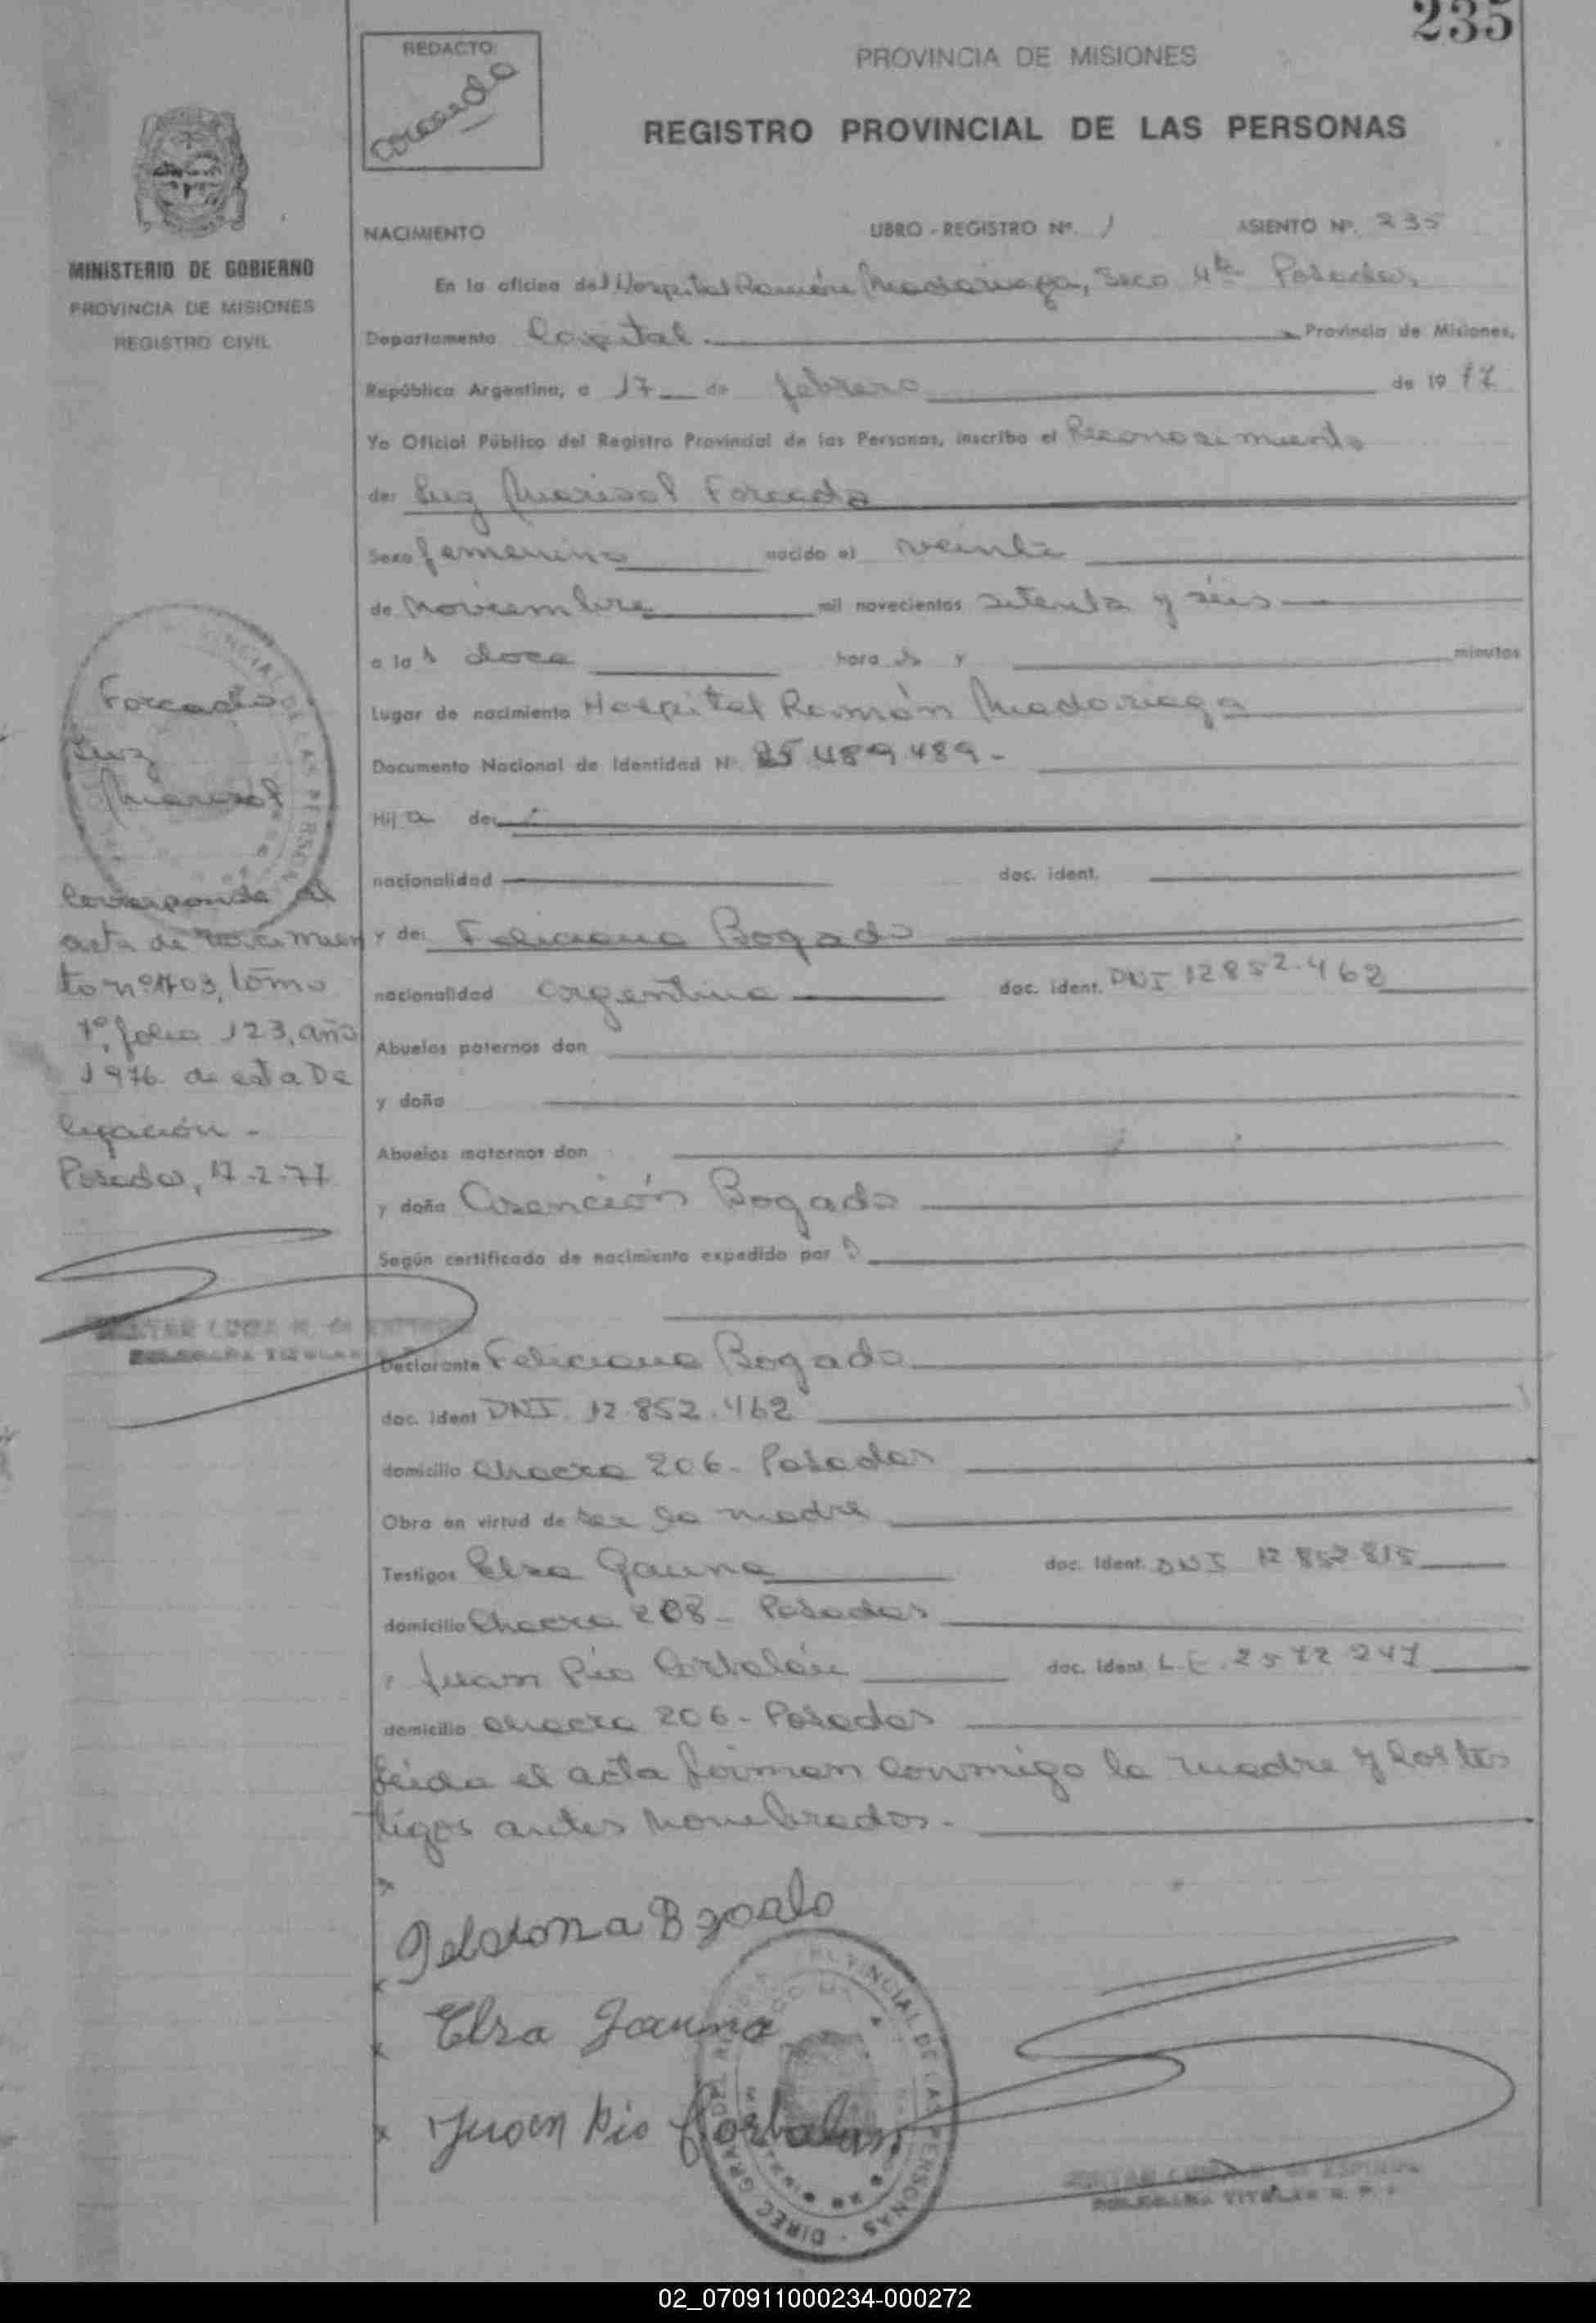 235
REDACTO:
PROVINCIA DE MISIONES
REGISTRO PROVINCIAL DE LAS PERSONAS
MINISTERIO DE GOBIERNO
PROVINCIA DE MISIONES
REGISTRO CIVIL
NACIMIENTO LIBRO - REGISTRO Nº. 1 ASIENTO Nº. 235
En la oficina del Hospital Ramón Madariaga, Secc 4ta Posadas
Departamento Capital. Provincia de Misiones,
República Argentina, a 17 de febrero de 19 77
Yo Oficial Público del Registro Provincial de las Personas, inscribo el Reconocimiento
de: Luz Marisol Forcado
Sexo femenino nacido el veinte
de noviembre mil novecientos setenta y séis
a las doce horas y minutos
Lugar de nacimiento Hospital Ramón Madariaga
Documento Nacional de Identidad Nº 25.489.489.-
Hija de:
nacionalidad doc. ident.
y de: Feliciana Bogado
nacionalidad argentina doc. ident. DNI 12.852.462
Abuelos paternos don
y doña
Abuelos maternos don
y doña Asención Bogado
Según certificado de nacimiento expedido por
Declarante Feliciana Bogado
doc. ident DNI. 12.852.462
domicilio Chacra 206 - Posadas
Obra en virtud de ser la madre
Testigos Elsa Gauna doc. ident. DNI 12.852.815
domicilio Chacra 208 - Posadas
Juan Pío Corbalán doc. ident. L.E. 2572247
domicilio chacra 206 - Posadas
Leída el acta firman conmigo la madre y los tes
tigos antes nombrados.-
Forcado
Luz
Marisol
Corresponde al
acta de nacimien
to nº 1403, tomo
1º, folio 123, año
1976 de esta De
legación -
Posadas, 17-2-77
Elsa Gauna
Juan Pio Corbalan
PROVINCIAL DE LAS PERSONAS - DIREC. GRAL.
02_070911000234-000272